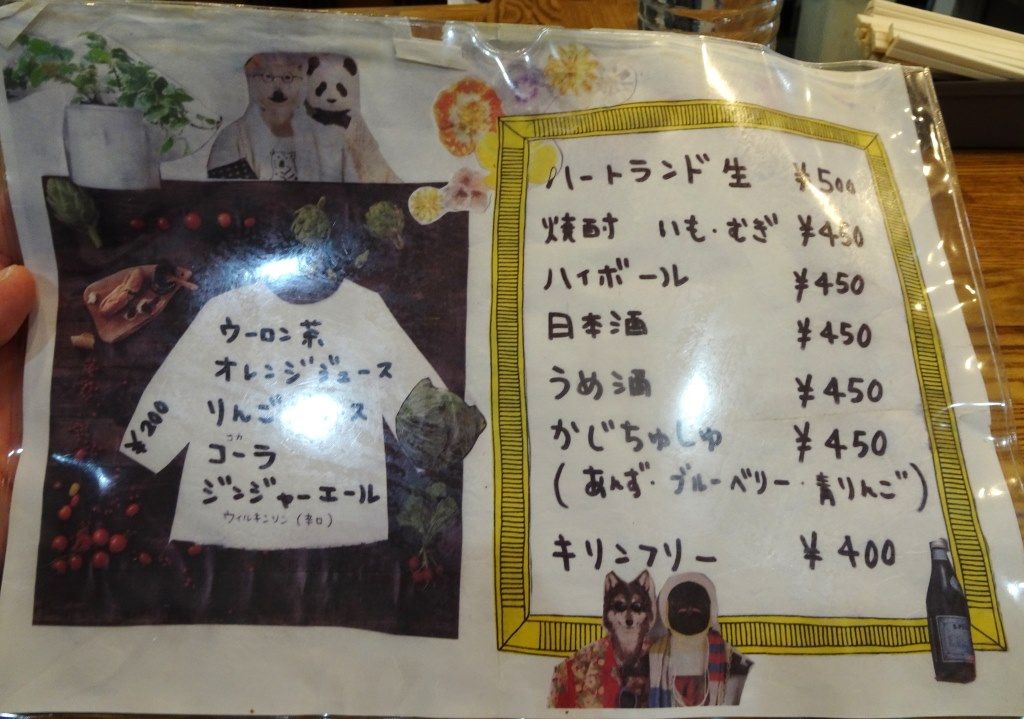 ウーロン茶
オレンジジュース
りんご
コカ
コーラ
ジンジャーエール
ウィルキンソン(辛口)
¥200
ハートランド 生 ¥500
焼酎 いも・むぎ ¥450
ハイボール ¥450
日本酒 ¥450
うめ酒 ¥450
かじちゅしゅ ¥450
(あんず・ブルーベリー・青りんご)
キリンフリー ¥400